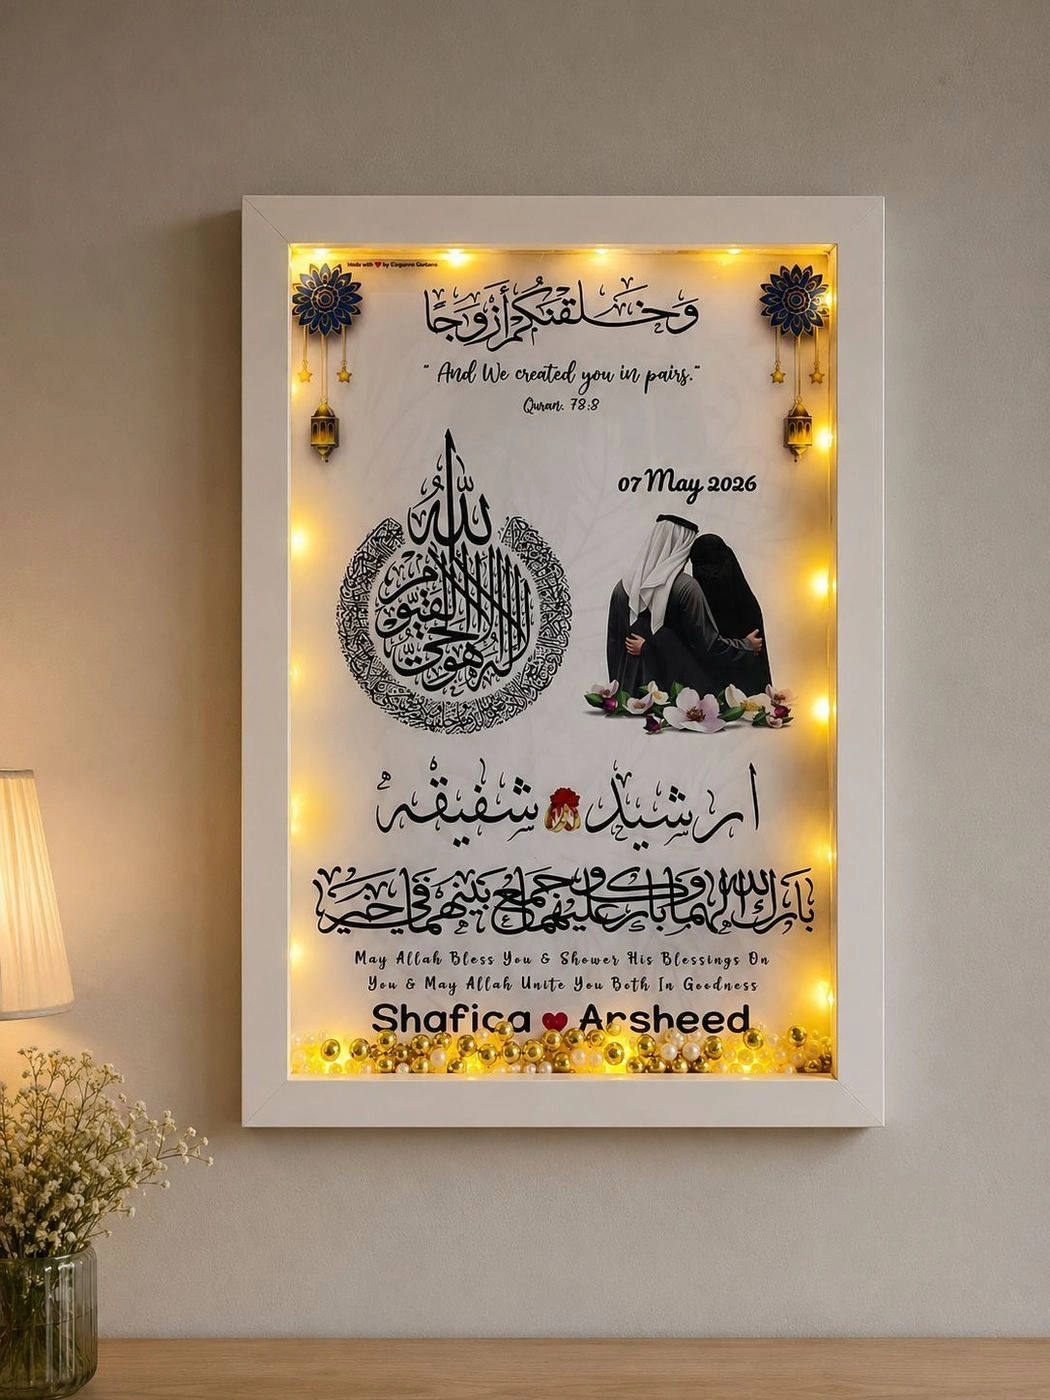 Made with ❤ by
وَخَلَقْنَٰكُمْ أَزْوَٰجًا
" And We created you in pairs."
Quran: 78:8
07 May 2026
الله لا إله إلا هو الحي القيوم
ارشید شفیقہ
بَارَكَ اللهُ لَهُمَا وَبَارَكَ عَلَيْهِمَا وَجَمَعَ بَيْنَهُمَا فِي خَيْرٍ
May Allah Bless You & Shower His Blessings On
You & May Allah Unite You Both In Goodness
Shafiqa ❤ Arsheed